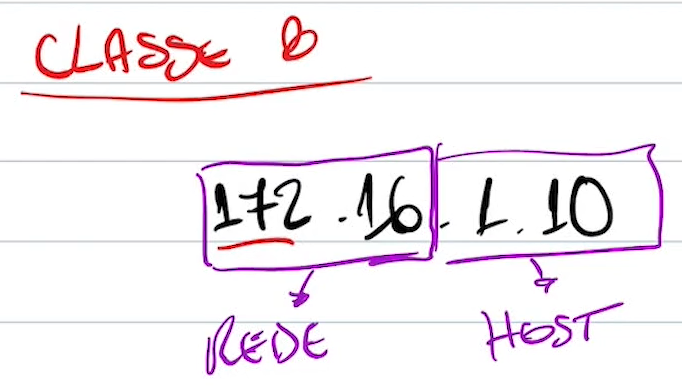 CLASSE B
172.16.1.10
REDE HOST